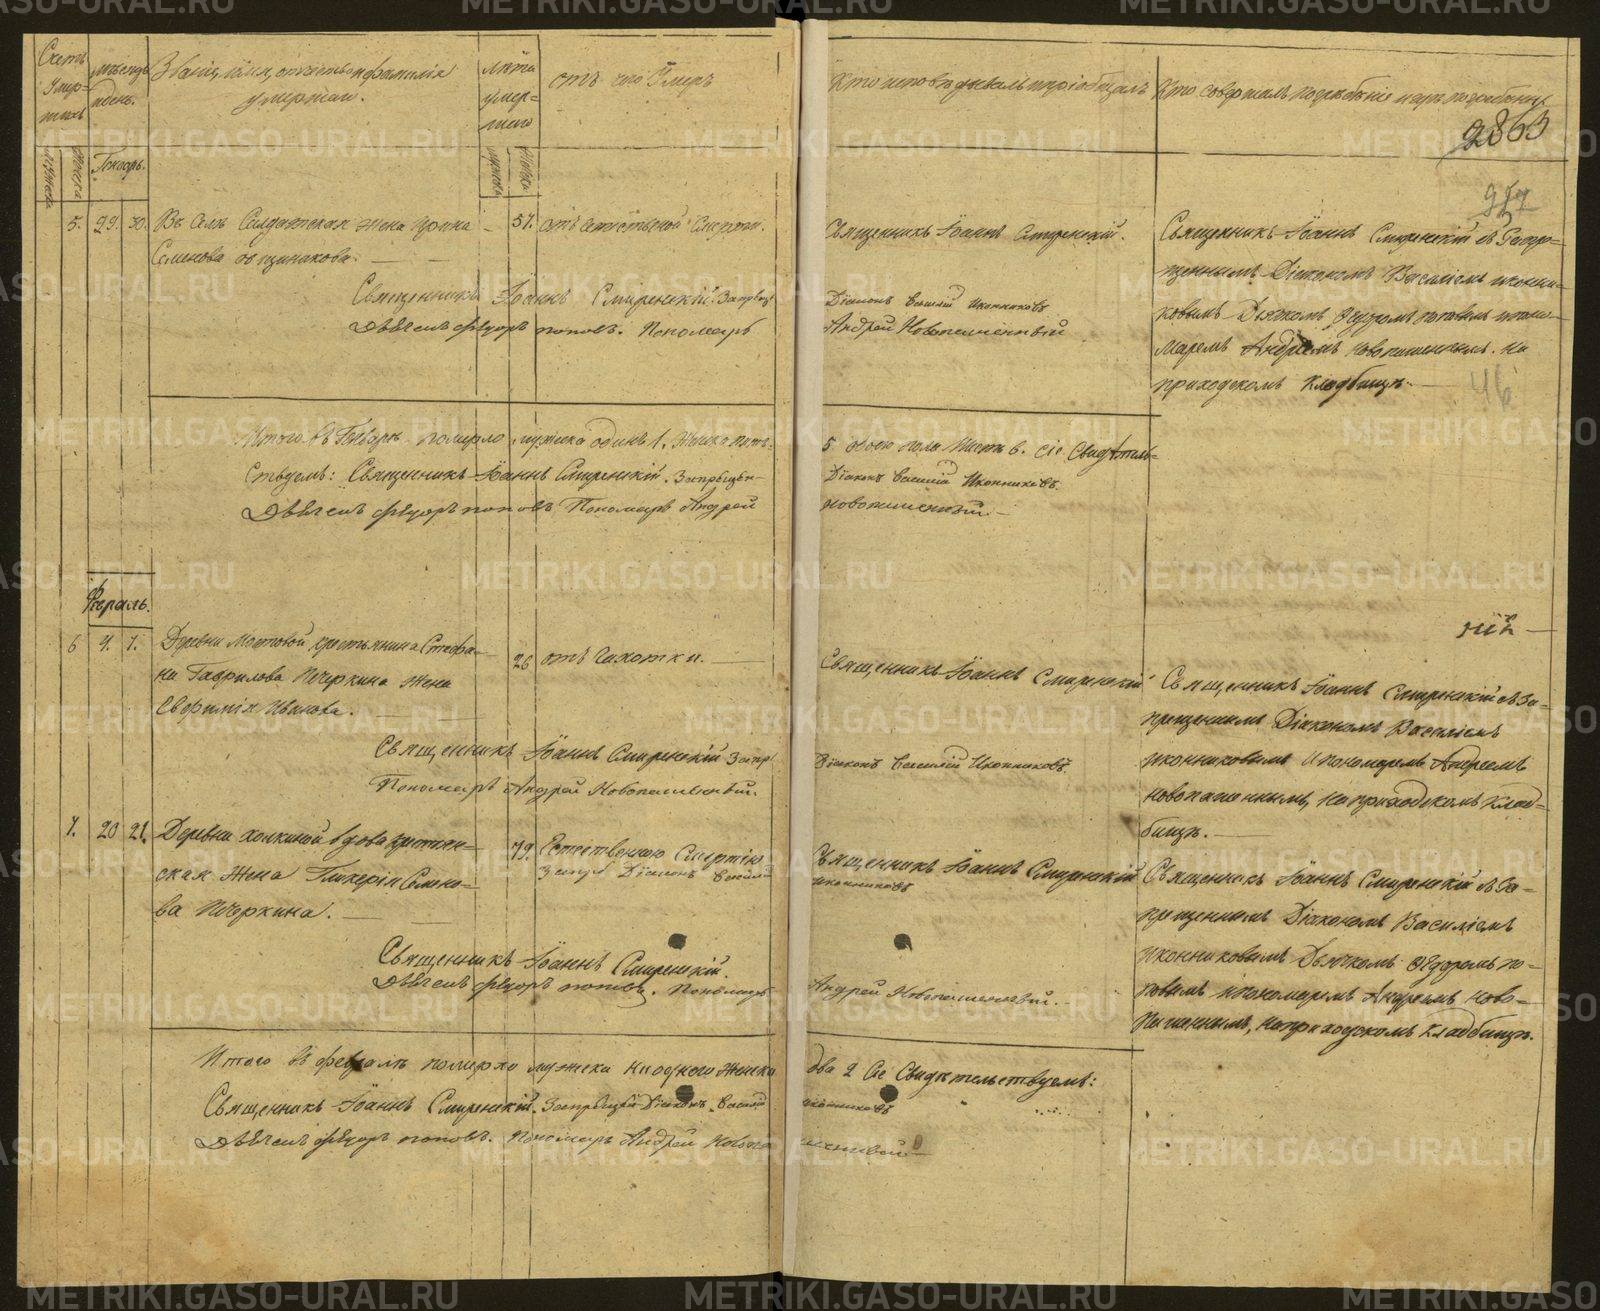 Счетъ умершихъ
мѣсецъ и день.
Званіе, имя, отчество и фамилія
умершаго.
лѣта
умер-
шаго
отъ чего умеръ
Кто исповѣдывалъ и пріобщалъ
Кто совершалъ погребеніе и гдѣ погребены
2863
мужска
женска
Генварь.
мужска
женска
5. 29. 30. Въ Селѣ Солдатская жена Ирина
Семенова Овчинакова.
57. отъ естественой Смерти.
Священникъ Іоаннъ Смиренскій.
Священникъ Іоаннъ Смиренскій съ Запре-
щеннымъ Діакономъ Василіемъ Иконни-
ковымъ Дьячкомъ Ѳедоромъ Поповымъ и поно-
маремъ Андреемъ Новопашеннымъ. На
приходскомъ Кладбищѣ.
46
Священникъ Іоаннъ Смиренскій. Запрѣщ
Діаконъ Василій Иконниковъ
Дьячекъ Федоръ поповъ. Пономарь
Андрей Новопашенный
Итого въ Генварѣ померло мужска одинъ 1. Женска пять
5 обоего пола Шесть 6. Сіе Свидѣтель-
ствуемъ: Священникъ Іоаннъ Смиренскій. Запрѣщен-
Діаконъ Василій Иконниковъ.
Дьячекъ федоръ поповъ Пономарь Андрей
новопашенный.
Февраль.
6 4. 7. Деревни Мостовой крестьянина Стефа-
на Гаврилова Печеркина жена
Евфимія Иванова.
26 отъ чахотки.
Священникъ Іоаннъ Смиренскій
Священникъ Іоаннъ Смиренскій съ За-
прещеннымъ Діакономъ Василіемъ
Иконниковымъ и пономаремъ Андреемъ
Новопашеннымъ, на приходскомъ Клад-
бищѣ.
Священникъ Іоаннъ Смиренскій Запр
Діаконъ Василій Иконниковъ.
Пономарь Андрей Новопашенный.
7. 20 21. Деревни вдова крестьян-
ская жена Гликерія Семено-
ва Печеркина.
79. Естественною Смертію
Запрѣ Діаконъ Василій
Священникъ Іоаннъ Смиренскій
Иконниковъ
Священникъ Іоаннъ Смиренскій съ За-
прещеннымъ Діакономъ Василіемъ
Иконниковымъ Дьячкомъ Ѳедоромъ По-
повымъ и пономаремъ Андреемъ Ново-
Пашеннымъ, на приходскомъ Кладбищѣ.
Священникъ Іоаннъ Смиренскій.
Дьячекъ федоръ поповъ. Пономарь
Андрей Новопашенный.
Итого Въ февралѣ померло мужска ни одного Женска
два 2 Сіе Свидѣтельствуемъ:
Священникъ Іоаннъ Смиренскій. Запрѣщен Діаконъ Василій
Иконниковъ
Дьячекъ федоръ поповъ. Пономарь Андрей Новопа
шенный
METRIKI.GASO-URAL.RU